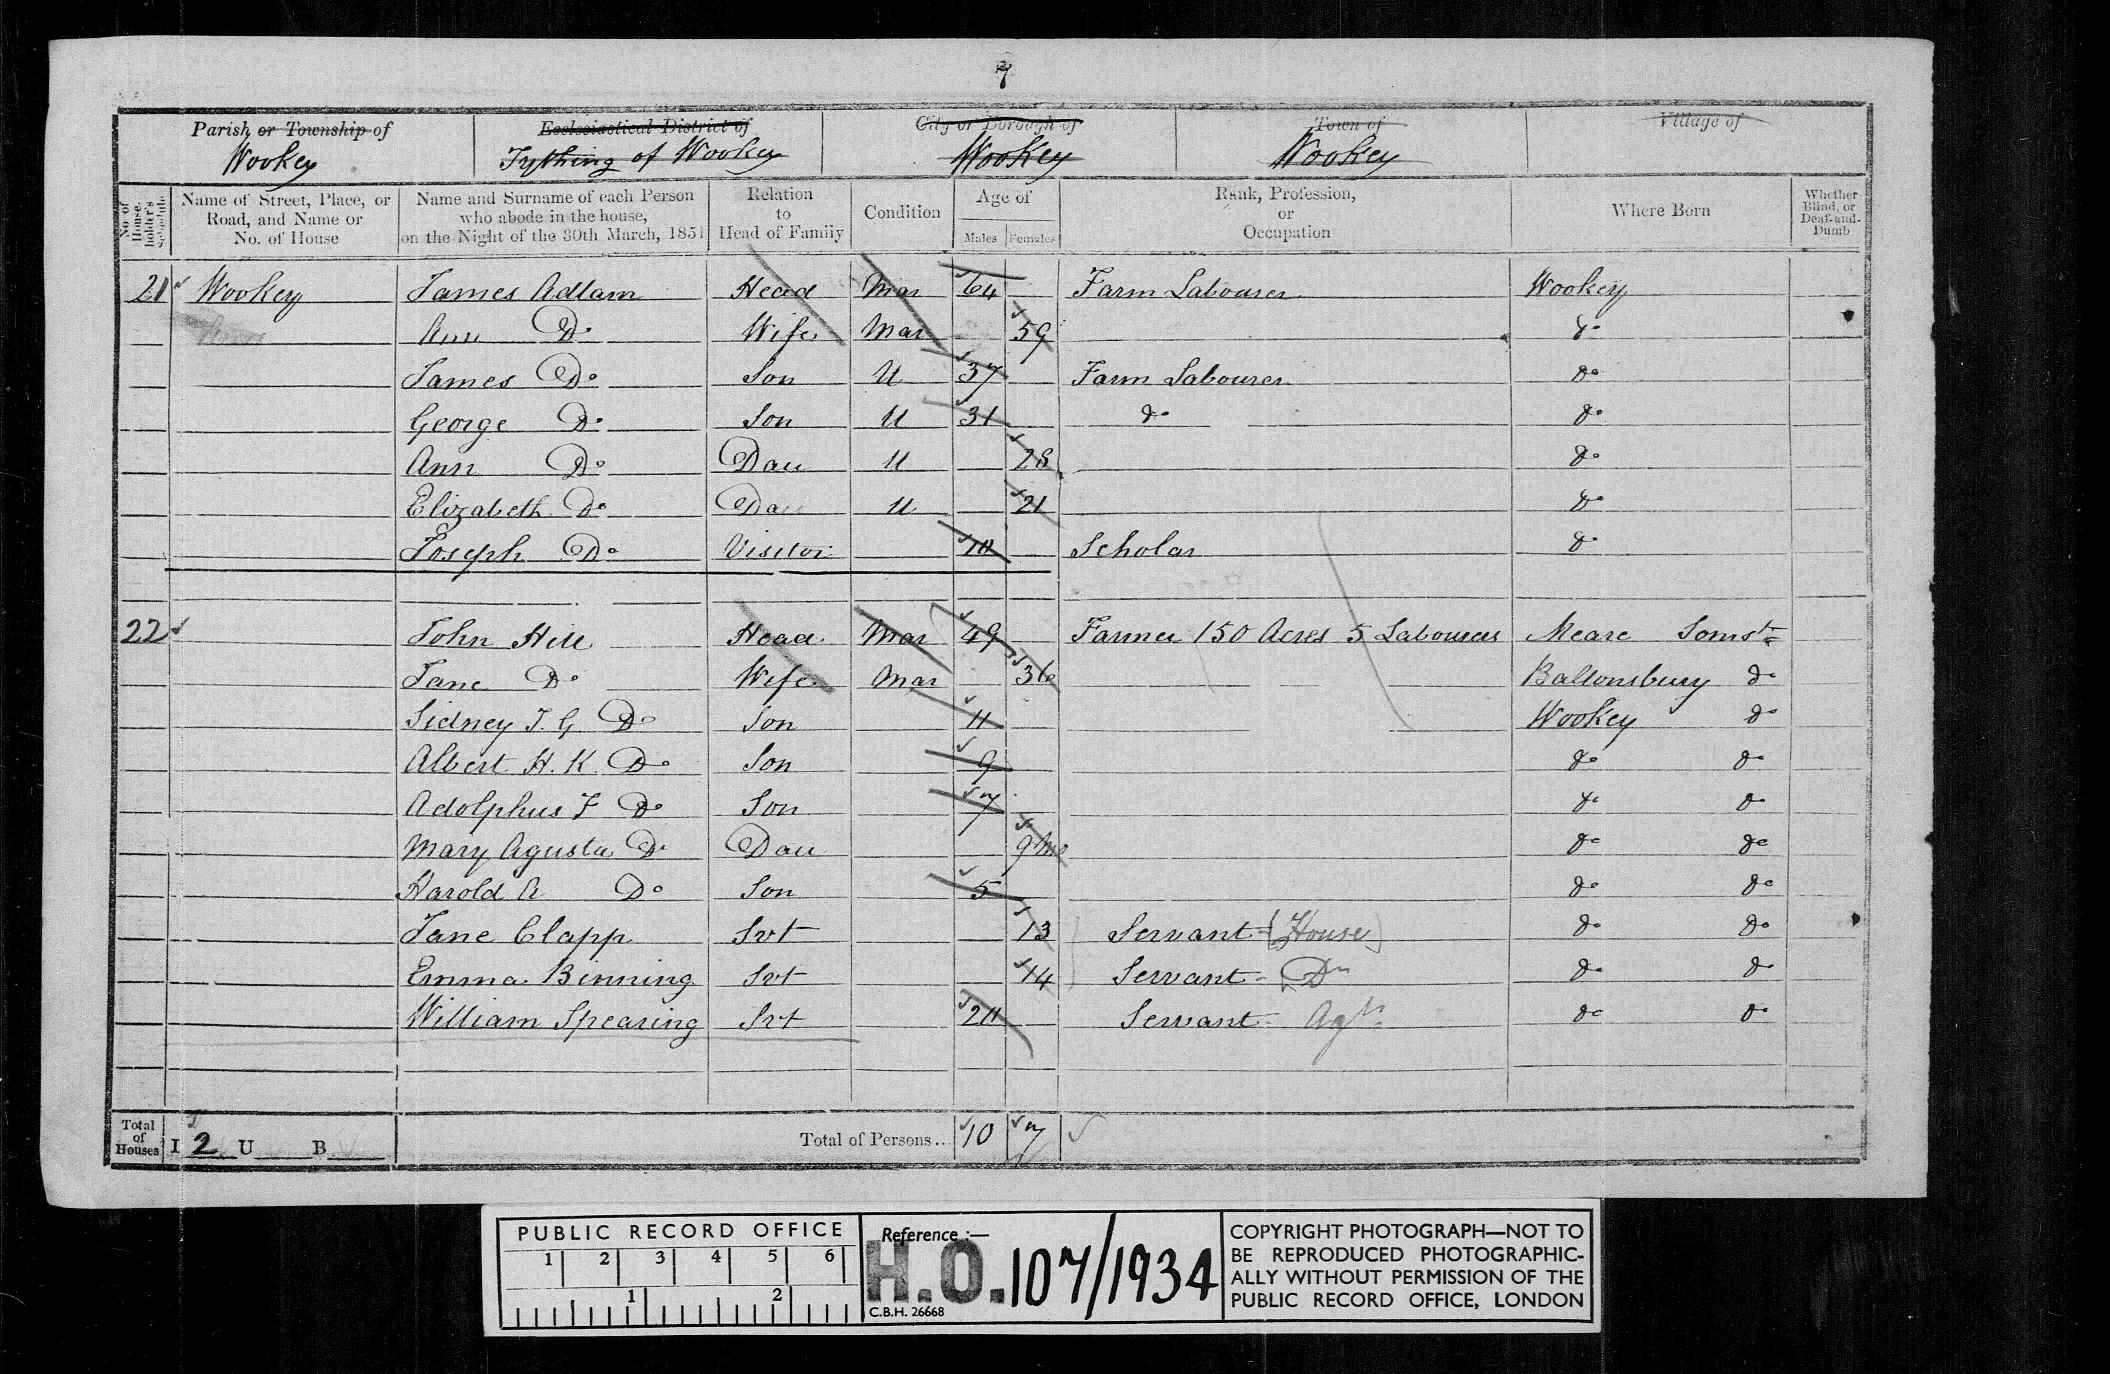 7
Parish or Township of Ecclesiastical District of City or Borough of Town of Village of
Wookey Tything of Wookey Wookey Wookey
No. of House-holder's Schedule
Name of Street, Place, or Road, and Name or No. of House
Name and Surname of each Person who abode in the house, on the Night of the 30th March, 1851
Relation to Head of Family
Condition
Age of
Males Females
Rank, Profession, or Occupation
Where Born
Whether Blind, or Deaf-and-Dumb
21 Wookey James Adlam Head Mar 64 Farm Labourer Wookey
Ann Do Wife Mar 59 do
James Do Son U 37 Farm Labourer do
George Do Son U 31 do do
Ann Do Dau U 28 do
Elizabeth Do Dau U 21 do
Joseph Do Visitor 10 Scholar do
22 John Hill Head Mar 49 Farmer 150 Acres 5 Labourers Meare Somst
Jane Do Wife Mar 36 Baltonsbury do
Sidney J. G. Do Son 11 Wookey do
Albert H. K. Do Son 9 do do
Adolphus F Do Son 7 do do
Mary Agusta Do Dau 9 Mo do do
Harold A Do Son 5 do do
Jane Clapp Svt 13 Servant (House) do do
Emma Binning Svt 14 Servant Do do do
William Spearing Svt 20 Servant Agl do do
Total of Houses I 2 U B Total of Persons... 10 7
PUBLIC RECORD OFFICE
1 2 3 4 5 6
1 2
Reference :-
H.O. 107/1934
C.B.H. 26668
COPYRIGHT PHOTOGRAPH—NOT TO
BE REPRODUCED PHOTOGRAPHIC-
ALLY WITHOUT PERMISSION OF THE
PUBLIC RECORD OFFICE, LONDON